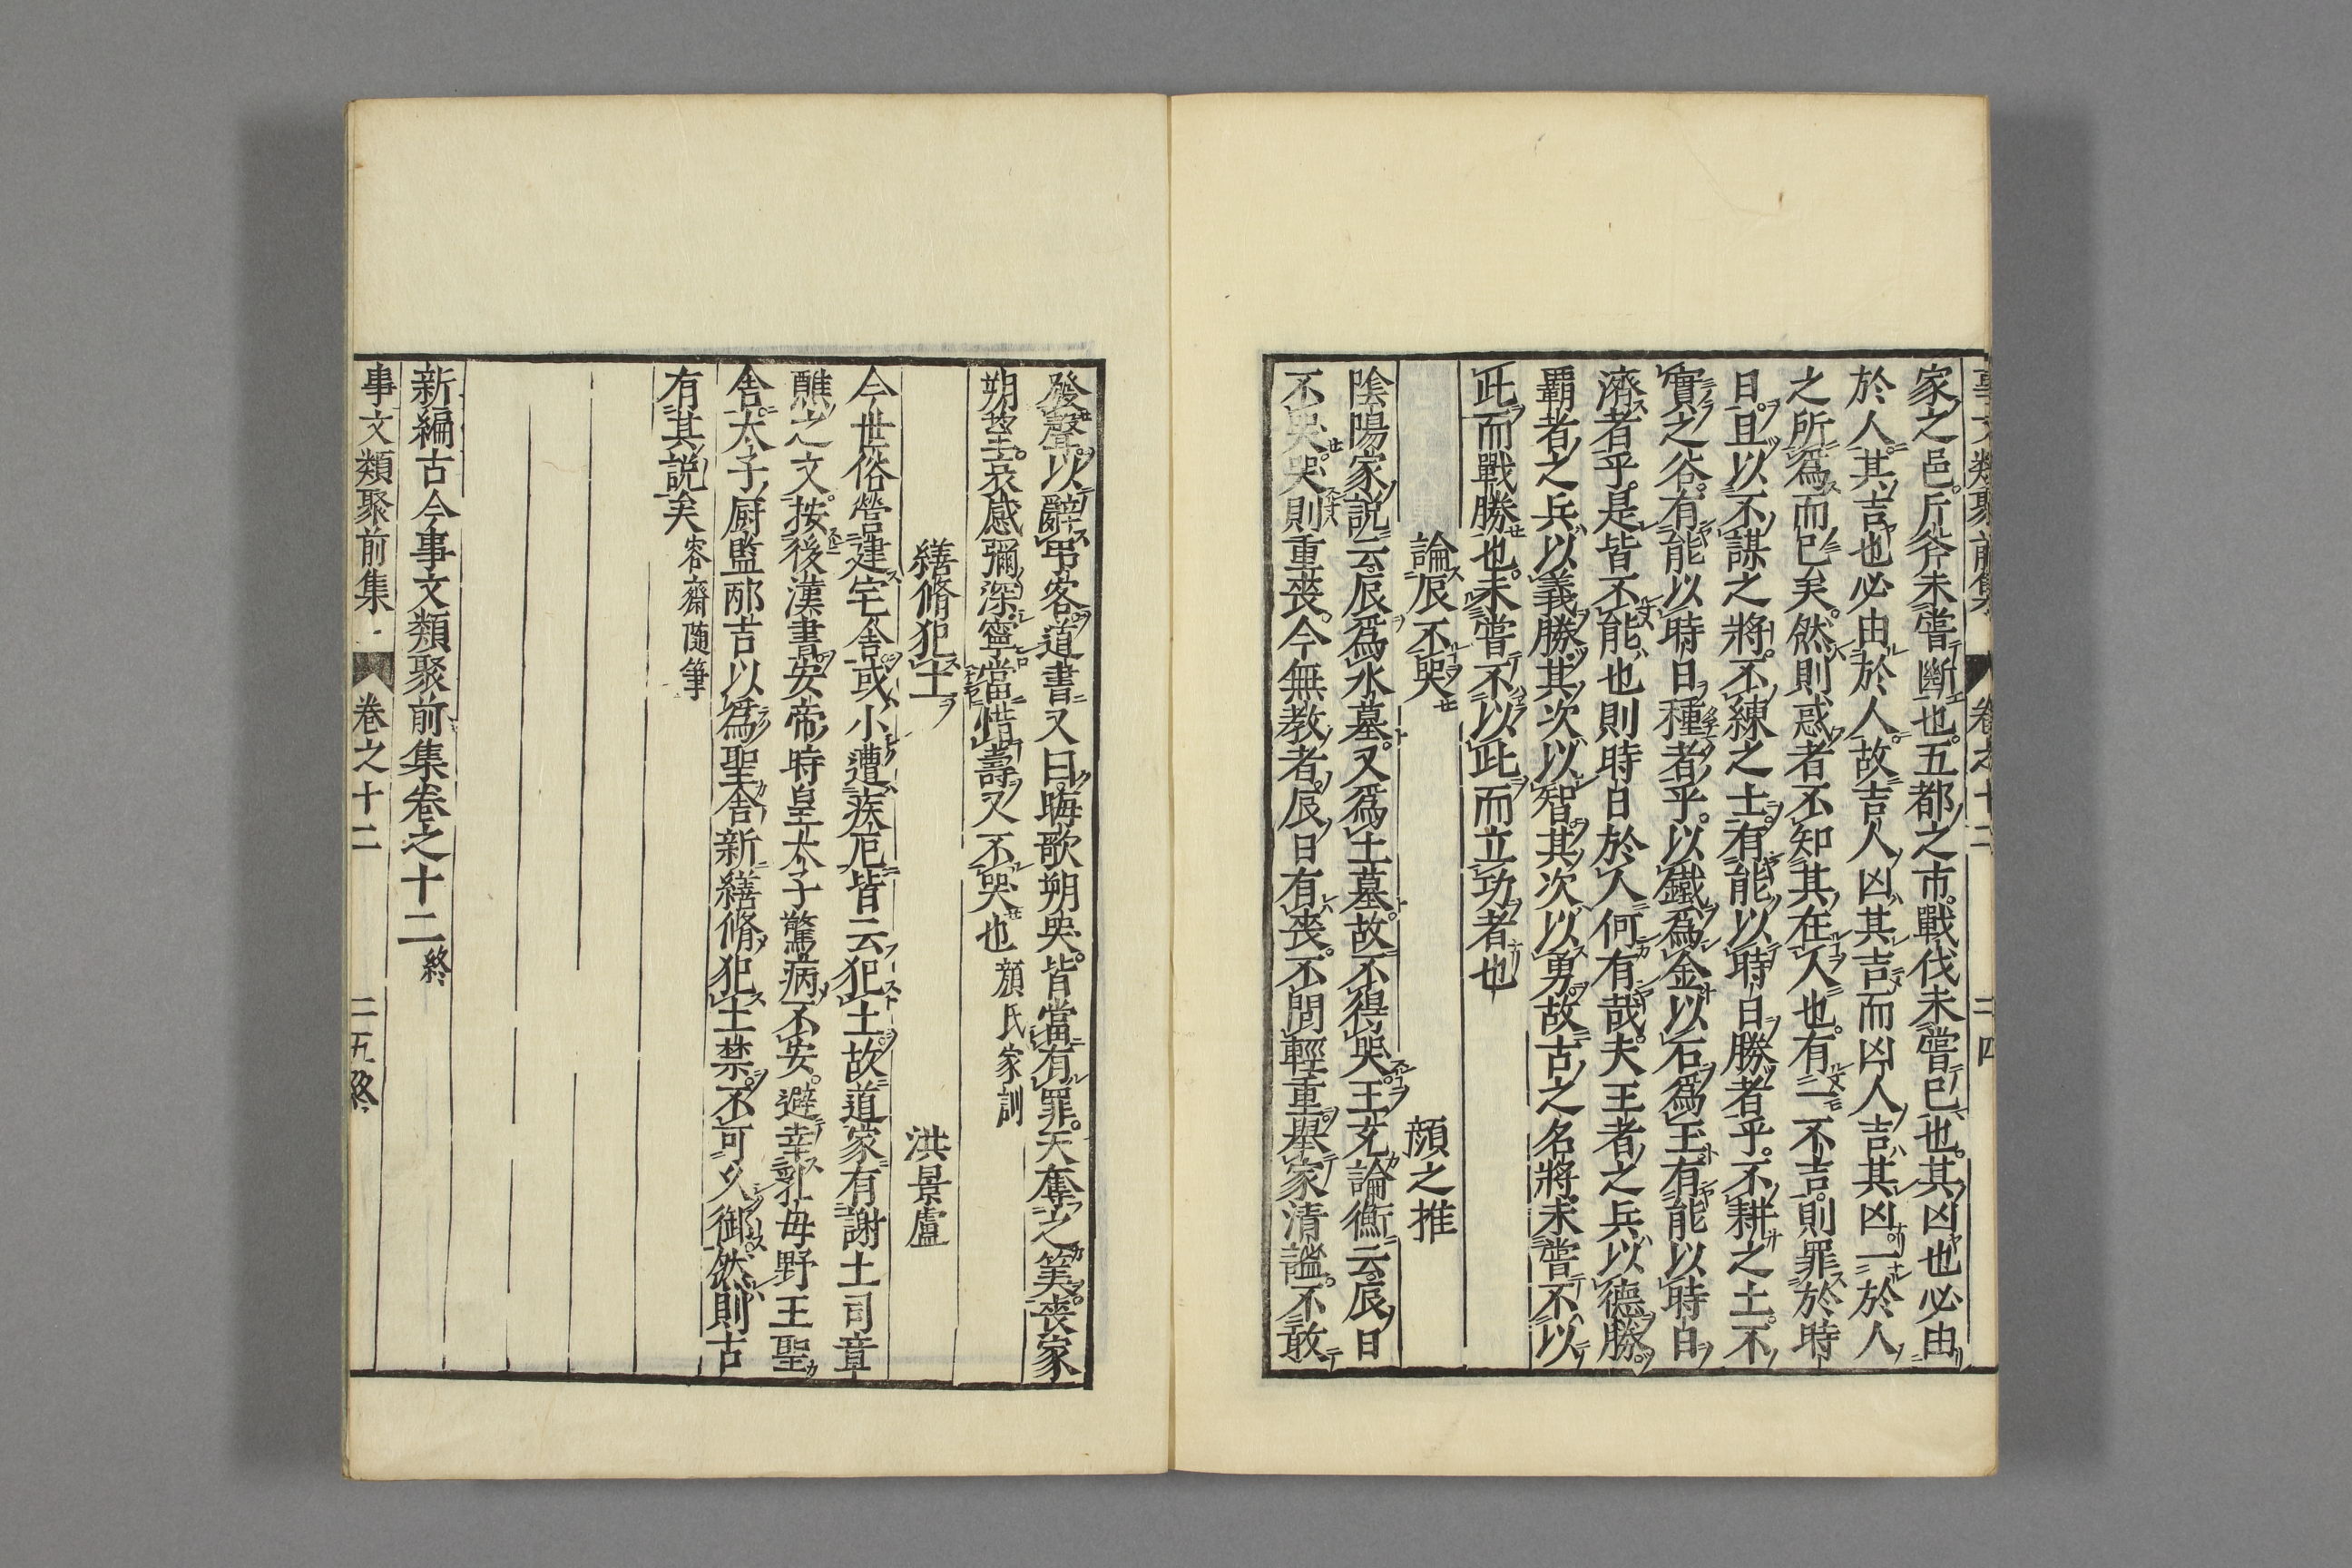 事文類聚前集 卷之十二 二四
家之邑斤斧未嘗斷也五都之市戰伐未嘗已也其凶也必由
於人其吉也必由於人故吉人凶其吉而凶人吉其凶一於人
之所爲而已矣然則惑者不知其在人也有二不吉則罪於時
日且以不謀之將不練之士有能以時日勝者乎不耕之土不
實之谷有能以時日種者乎以鐵爲金以石爲玉有能以時日
濟者乎是皆不能也則時日於人何有哉夫王者之兵以德勝
覇者之兵以義勝其次以智其次以勇故古之名將未嘗不以
此而戰勝也未嘗不以此而立功者也
論辰不哭 顔之推
陰陽家說云辰爲水墓又爲土墓故不得哭王充論衡云辰日
不哭哭則重喪今無教者辰日有喪不問輕重舉家清謐不敢
發聲以辭弔客道書又曰晦歌朔哭皆當有罪天奪之筭喪家
朔望哀感彌深寧當惜壽又不哭也 顔氏家訓
繕脩犯土 洪景盧
今世俗營建宅舍或小遭疾厄皆云犯土故道家有謝土司章
醮之文按後漢書安帝時皇太子驚病不安避幸乳母野王聖
舎太子厨監邴吉以爲聖舎新繕脩犯土禁不可久御然則古
有其說矣 容齋隨筆
新編古今事文類聚前集卷之十二終
事文類聚前集 卷之十二 二五終